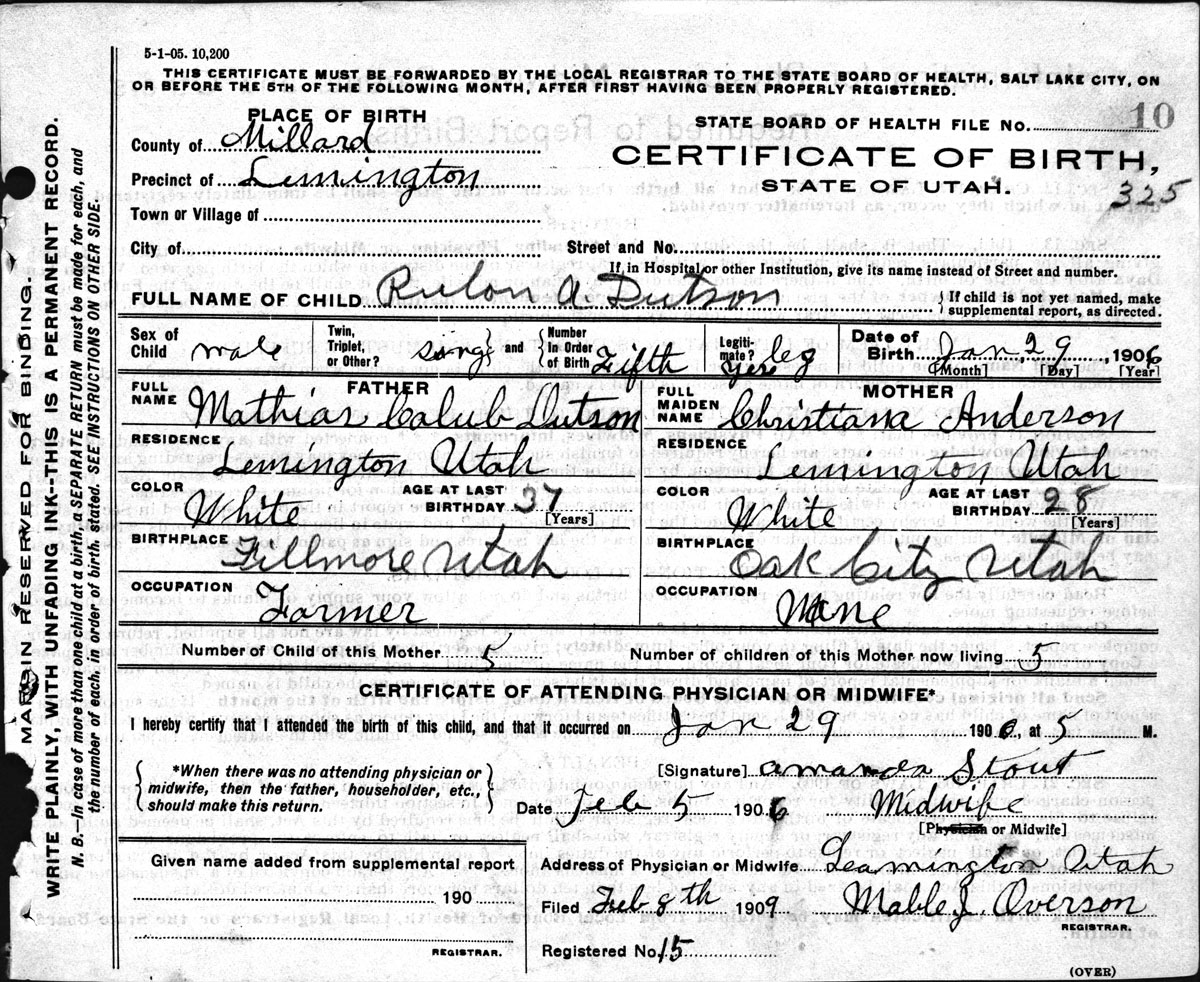 5-1-05. 10,200
THIS CERTIFICATE MUST BE FORWARDED BY THE LOCAL REGISTRAR TO THE STATE BOARD OF HEALTH, SALT LAKE CITY, ON
OR BEFORE THE 5TH OF THE FOLLOWING MONTH, AFTER FIRST HAVING BEEN PROPERLY REGISTERED.
MARGIN RESERVED FOR BINDING.
WRITE PLAINLY, WITH UNFADING INK--THIS IS A PERMANENT RECORD.
N. B.—In case of more than one child at a birth, a SEPARATE RETURN must be made for each, and
the number of each, in order of birth, stated. SEE INSTRUCTIONS ON OTHER SIDE.
PLACE OF BIRTH
County of Millard
Precinct of Lemington
Town or Village of
City of
STATE BOARD OF HEALTH FILE NO. 10
CERTIFICATE OF BIRTH,
STATE OF UTAH.
325
Street and No.
If in Hospital or other Institution, give its name instead of Street and number.
FULL NAME OF CHILD Rulon A. Dutson
{If child is not yet named, make
supplemental report, as directed.
Sex of Child male
Twin, Triplet, or Other? sing} and {Number In Order of Birth Fifth
Legiti-mate? Yes leg
Date of Birth Jan 29, 1906
[Month] [Day] [Year]
FATHER
FULL NAME Mathias Calub Dutson
RESIDENCE Lemington Utah
COLOR White AGE AT LAST BIRTHDAY 37 [Years]
BIRTHPLACE Fillmore Utah
OCCUPATION Farmer
MOTHER
FULL MAIDEN NAME Christiana Anderson
RESIDENCE Lemington Utah
COLOR White AGE AT LAST BIRTHDAY 28 [Years]
BIRTHPLACE Oak City Utah
OCCUPATION None
Number of Child of this Mother 5 Number of children of this Mother now living 5
CERTIFICATE OF ATTENDING PHYSICIAN OR MIDWIFE*
I hereby certify that I attended the birth of this child, and that it occurred on Jan 29 1906, at 5 M.
{*When there was no attending physician or
midwife, then the father, householder, etc.,
should make this return.}
[Signature] Amanda Stout
Date Feb 5 1906 Midwife
[Physician or Midwife]
Given name added from supplemental report
190
REGISTRAR.
Address of Physician or Midwife Leamington Utah
Filed Feb 8th 1909 Mable J. Overson
REGISTRAR.
Registered No. 15
(OVER)